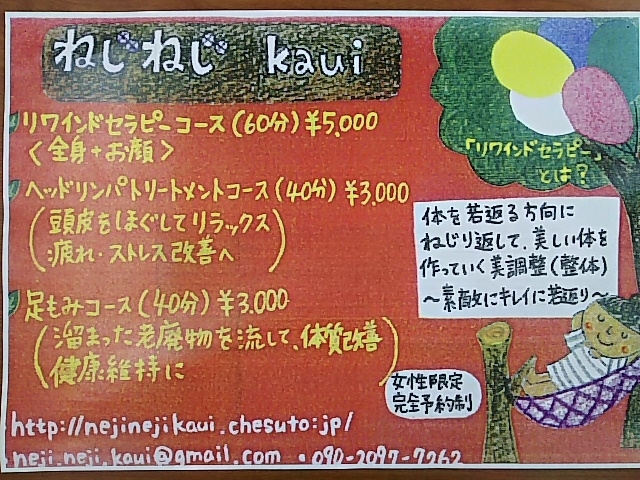 ねじねじ kaui
リワインドセラピーコース(60分)¥5,000
<全身+お顔>
ヘッドリンパトリートメントコース(40分)¥3,000
(頭皮をほぐしてリラックス
疲れ・ストレス改善へ)
足もみコース(40分)¥3,000
(溜まった老廃物を流して、体質改善
健康維持に)
「リワインドセラピー」
とは?
体を若返る方向に
ねじり返して、美しい体を
作っていく美調整(整体)
~素敵にキレイに若返り~
女性限定
完全予約制
http://nejinejikaui.chesuto.jp/
neji.neji.kaui@gmail.com ・090-2097-7262